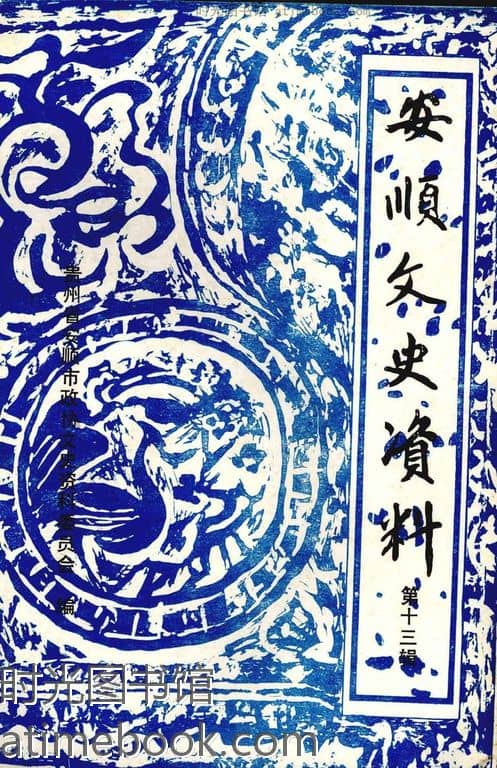 安順文史資料
第十三辑
贵州省安顺市政协文史资料委员会 编
时光图书馆
atimebook.com